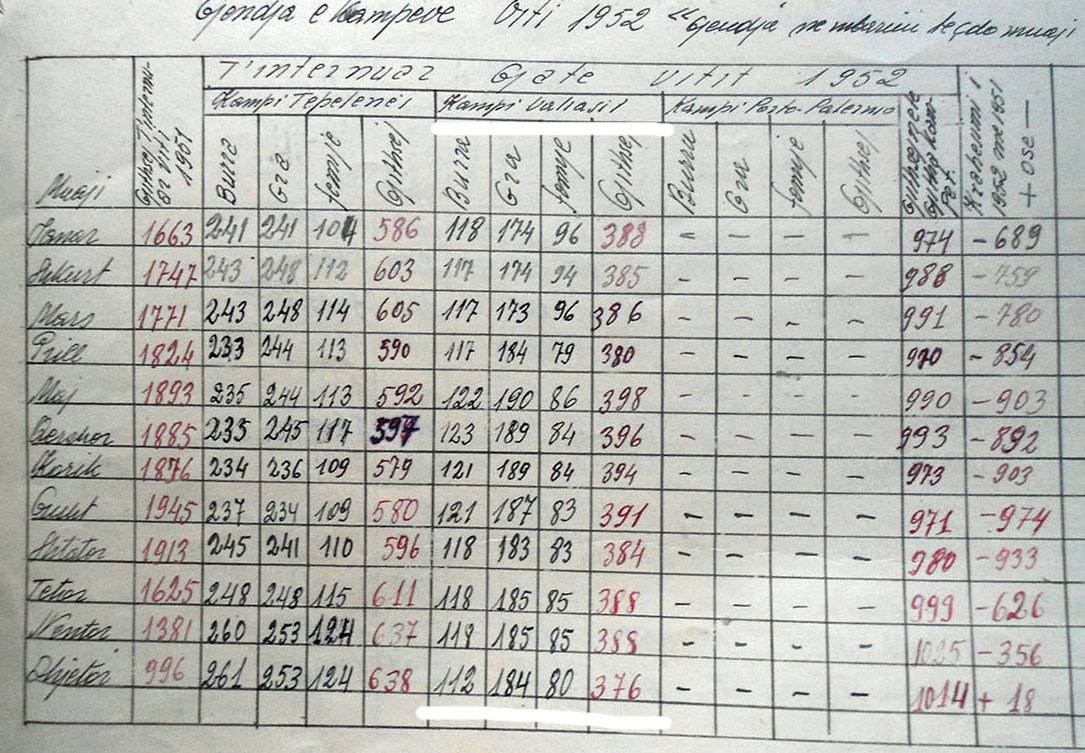 Gjendja e Kampeve Viti 1952 "Gjendja ne mbarim te çdo muaji
T'internuar Gjate vitit 1952
Kampi Tepelenës Kampi Valiasit Kampi Porto-Palermo
Muaji Gjithsej T'internuar viti 1951 Burra Gra femije Gjithsej Burra Gra femije Gjithsej Burra Gra femije Gjithsej Gjithsej Krahasimi i 1952 me 1951 + ose —
Janar 1663 241 241 104 586 118 174 96 388 - - - - 974 -689
Shkurt 1747 243 248 112 603 117 174 94 385 - - - - 988 -759
Mars 1771 243 248 114 605 117 173 96 386 - - - - 991 -780
Prill 1824 233 244 113 590 117 184 79 380 - - - - 970 -854
Maj 1893 235 244 113 592 122 190 86 398 - - - - 990 -903
Qershor 1885 235 245 117 597 123 189 84 396 - - - - 993 -892
Korik 1876 234 236 109 579 121 189 84 394 - - - - 973 -903
Gusht 1945 237 234 109 580 121 187 83 391 - - - - 971 -974
Shtator 1913 245 241 110 596 118 183 83 384 - - - - 980 -933
Tetor 1625 248 248 115 611 118 185 85 388 - - - - 999 -626
Nentor 1381 260 253 124 637 118 185 85 388 - - - - 1025 -356
Dhjetor 996 261 253 124 638 112 184 80 376 - - - - 1014 + 18